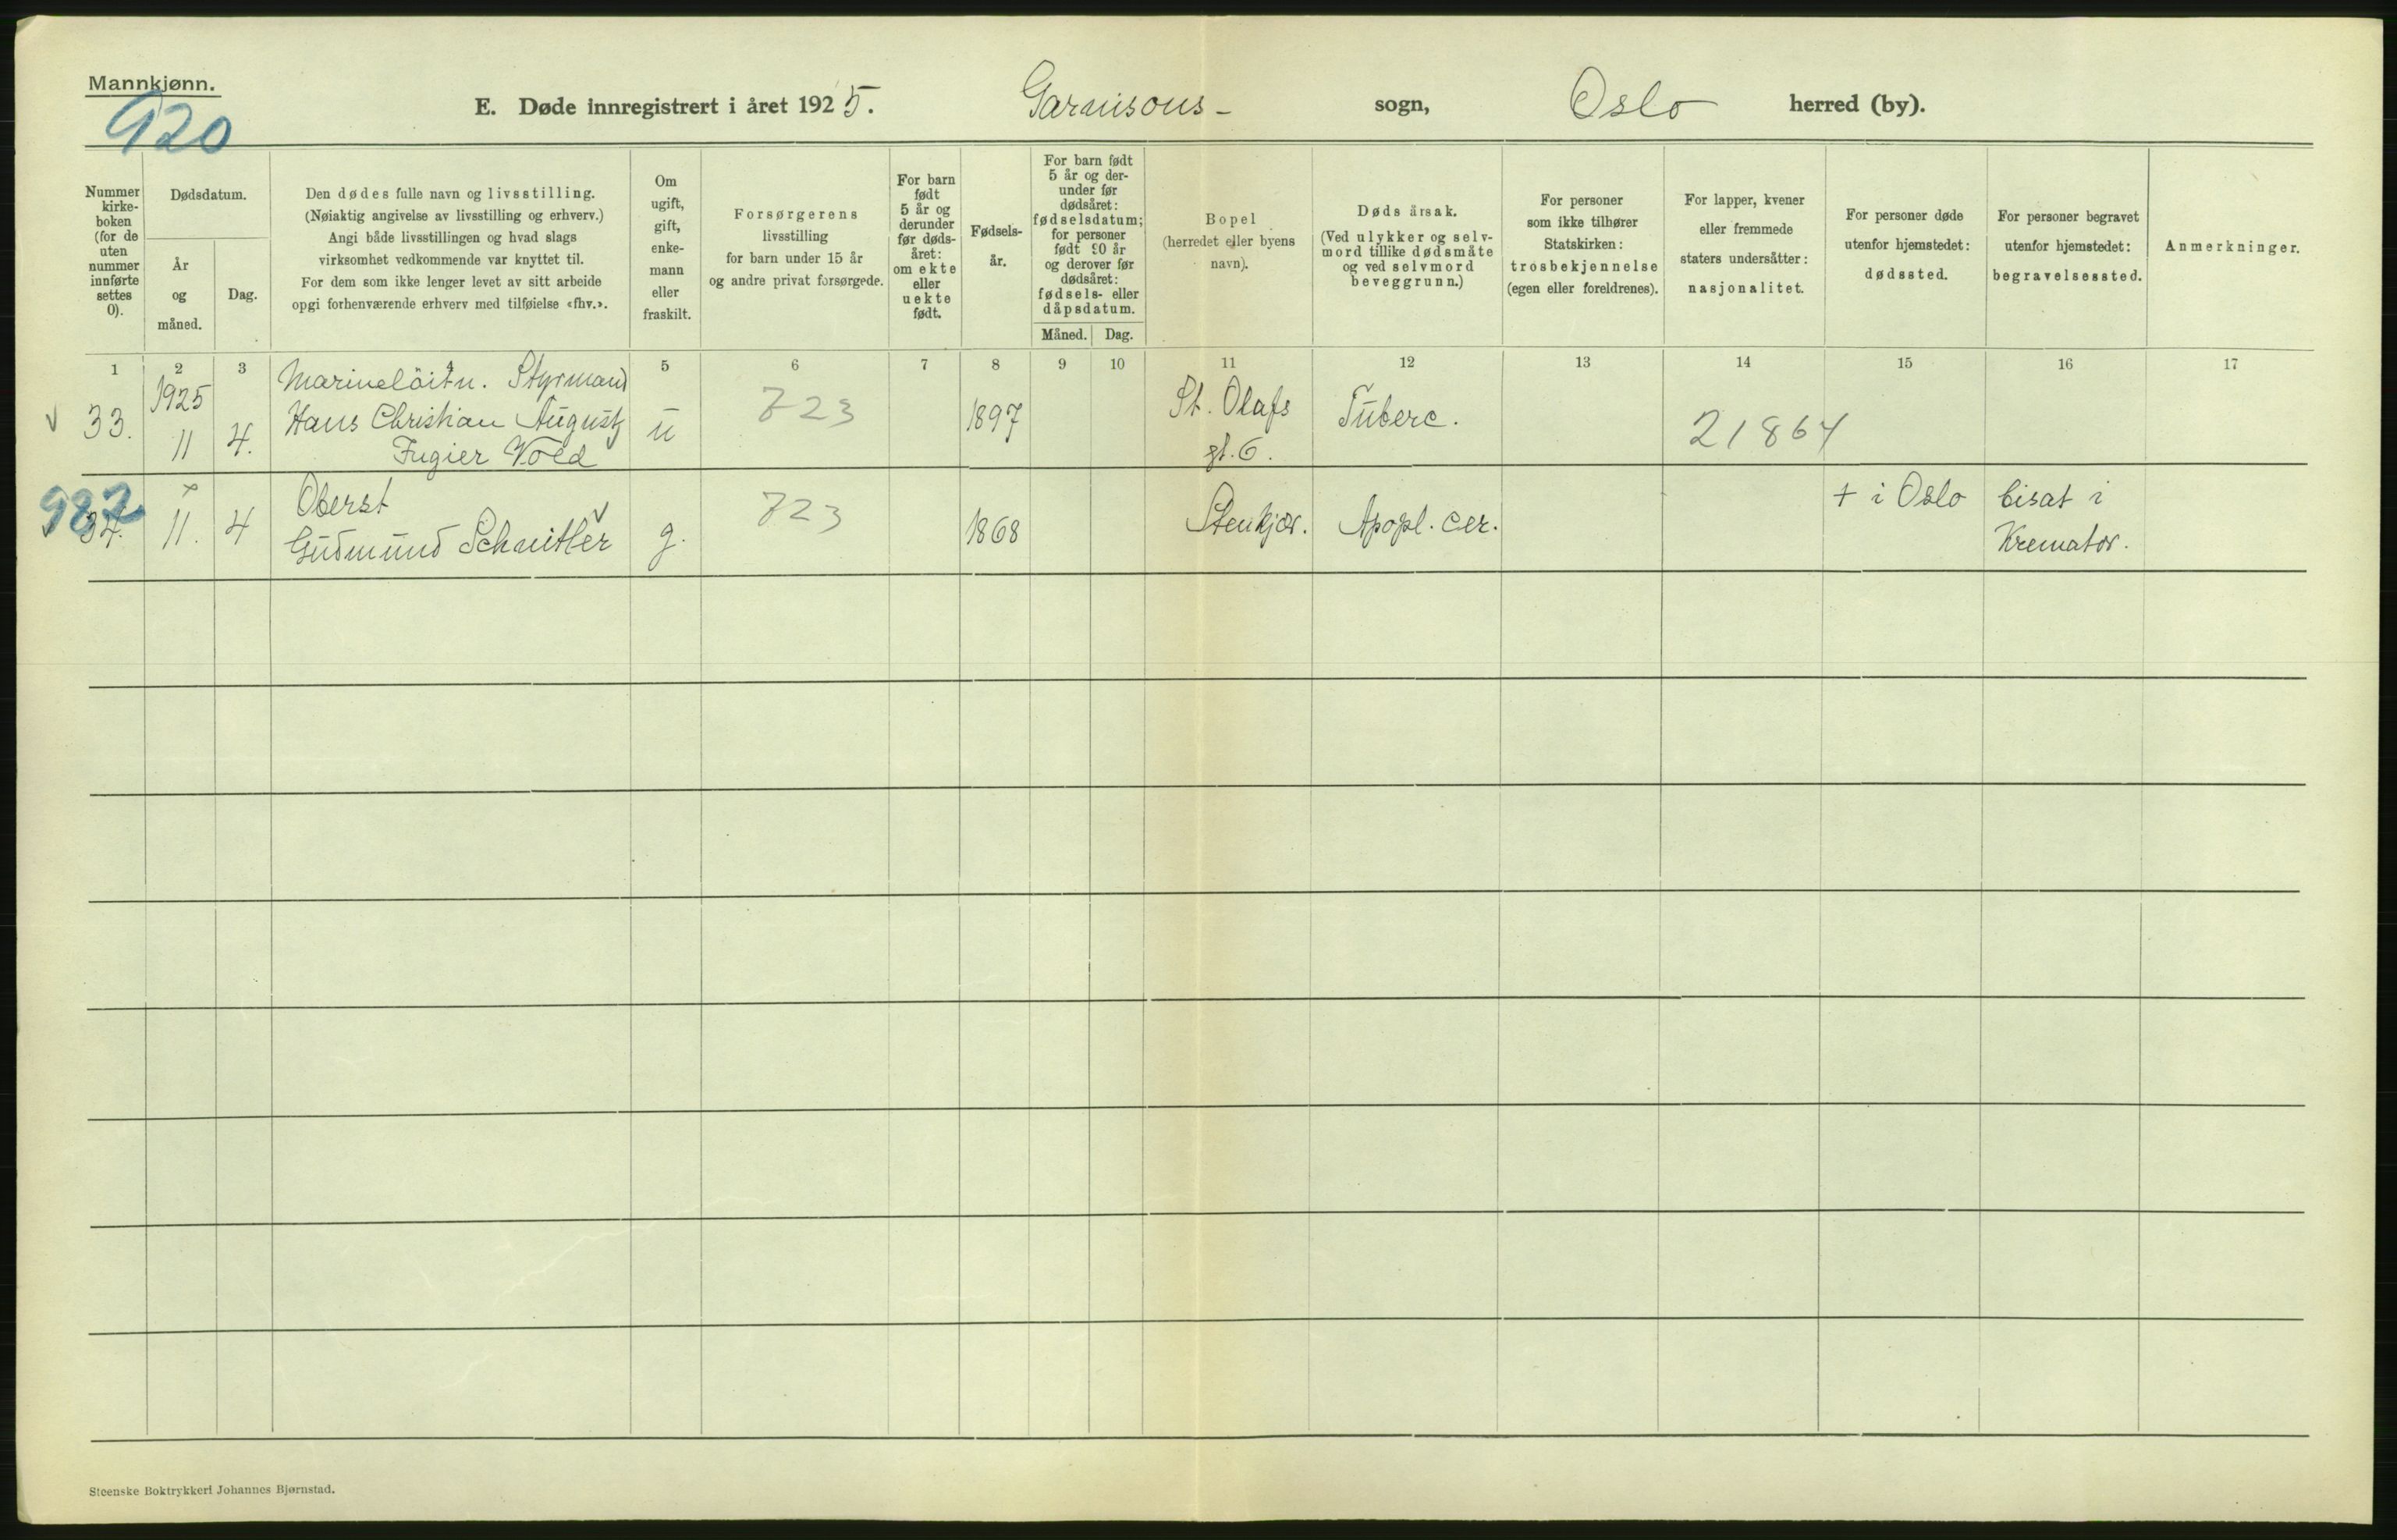 Mannkjønn.
920
E. Døde innregistrert i året 1925. Garnisons- sogn, Oslo herred (by).
Nummer
kirke-
boken
(for de
uten
nummer
innførte
settes
0).
Dødsdatum.
År
og
måned.
Dag.
Den dødes fulle navn og livsstilling.
(Nøiaktig angivelse av livsstilling og erhverv.)
Angi både livsstillingen og hvad slags
virksomhet vedkommende var knyttet til.
For dem som ikke lenger levet av sitt arbeide
opgi forhenværende erhverv med tilføielse «fhv.».
Om
ugift,
gift,
enke-
mann
eller
fraskilt.
Forsørgerens
livsstilling
for barn under 15 år
og andre privat forsørgede.
For barn
født
5 år og
derunder
før døds-
året:
om ekte
eller
uekte
født.
Fødsels-
år.
For barn født
5 år og der-
under før
dødsåret:
fødselsdatum;
for personer
født 90 år
og derover før
dødsåret:
fødsels- eller
dåpsdatum.
Måned. Dag.
Bopel
(herredet eller byens
navn).
Dødsårsak.
(Ved ulykker og selv-
mord tillike dødsmåte
og ved selvmord
beveggrunn.)
For personer
som ikke tilhører
Statskirken:
trosbekjennelse
(egen eller foreldrenes).
For lapper, kvener
eller fremmede
staters undersåtter:
nasjonalitet.
For personer døde
utenfor hjemstedet:
dødssted.
For personer begravet
utenfor hjemstedet:
begravelsessted.
Anmerkninger.
1 2 3 5 6 7 8 9 10 11 12 13 14 15 16 17
33. 1925 11 4.
Marinelöitn. Styrmand
Hans Christian August
Fugier Vold
u 723 1897
St. Olafs
gt. 6.
Tuberc. 21864
982
34. 11. 4
Oberst
Gudmund Schnitler
g. 723 1868 Stenkjær. Apopl. cer. + i Oslo
bisat i
Kremator.
Steenske Boktrykkeri Johannes Bjørnstad.